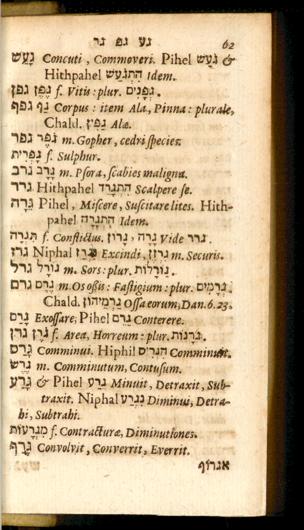 נע גפ גר 62
גָּעַשׁ Concuti, Commoveri. Pihel גֹּעַשׁ &
Hithpahel הִתְגָּעֵשׁ Idem.
גֶּפֶן גפן f. Vitis: plur. גְּפָנִים.
גַּף גפף Corpus: item Ala, Pinna: plurale,
Chald. גַּפִּין Alæ.
גֹּפֶר גפר m. Gopher, cedri species.
גָּפְרִית f. Sulphur.
גָּרָב גרב m. Psora, scabies maligna.
גרד Hithpahel הִתְגָּרֵד Scalpere se.
גָּרָה Pihel, Miscere, Suscitare lites. Hith-
pahel הִתְגָּרָה Idem.
תִּגְרָה f. Conflictus. גֵּרָה, גָּרוֹן, Vide גרר.
גרז Niphal Excindi. גַּרְזֶן m. Securis.
גּוֹרָל גרל m. Sors: plur. גּוֹרָלוֹת.
גֶּרֶם גרם m. Os ossis: Fastigium: plur. גְּרָמִים.
Chald. גַּרְמֵיהוֹן Ossa eorum, Dan. 6. 23.
גָּרַם Exossare, Pihel גֵּרֵם Conterere.
גֹּרֶן גרן f. Area, Horreum: plur. גֳּרָנוֹת.
גָּרַס Comminui. Hiphil הִגְרִיס Comminuit.
גֶּרֶשׂ m. Comminutum, Contusum.
גָּרַע & Pihel גֵּרַע Minuit, Detraxit, Sub-
traxit. Niphal נִגְרַע Diminui, Detra-
hi, Subtrahi.
מִגְרָעוֹת f. Contracturæ, Diminutiones.
גָּרַף Convolvit, Converrit, Everrit.
אגרוף